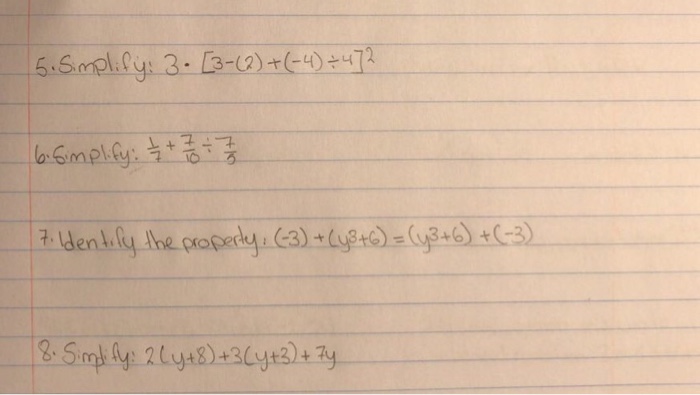 5. Simplify: 3 · [3-(2)+(-4)÷4]²
6. Simplify: 1/7 + 7/10 ÷ 7/5
7. Identify the property: (-3)+(y³+6)=(y³+6)+(-3)
8. Simplify: 2(y+8)+3(y+3)+7y